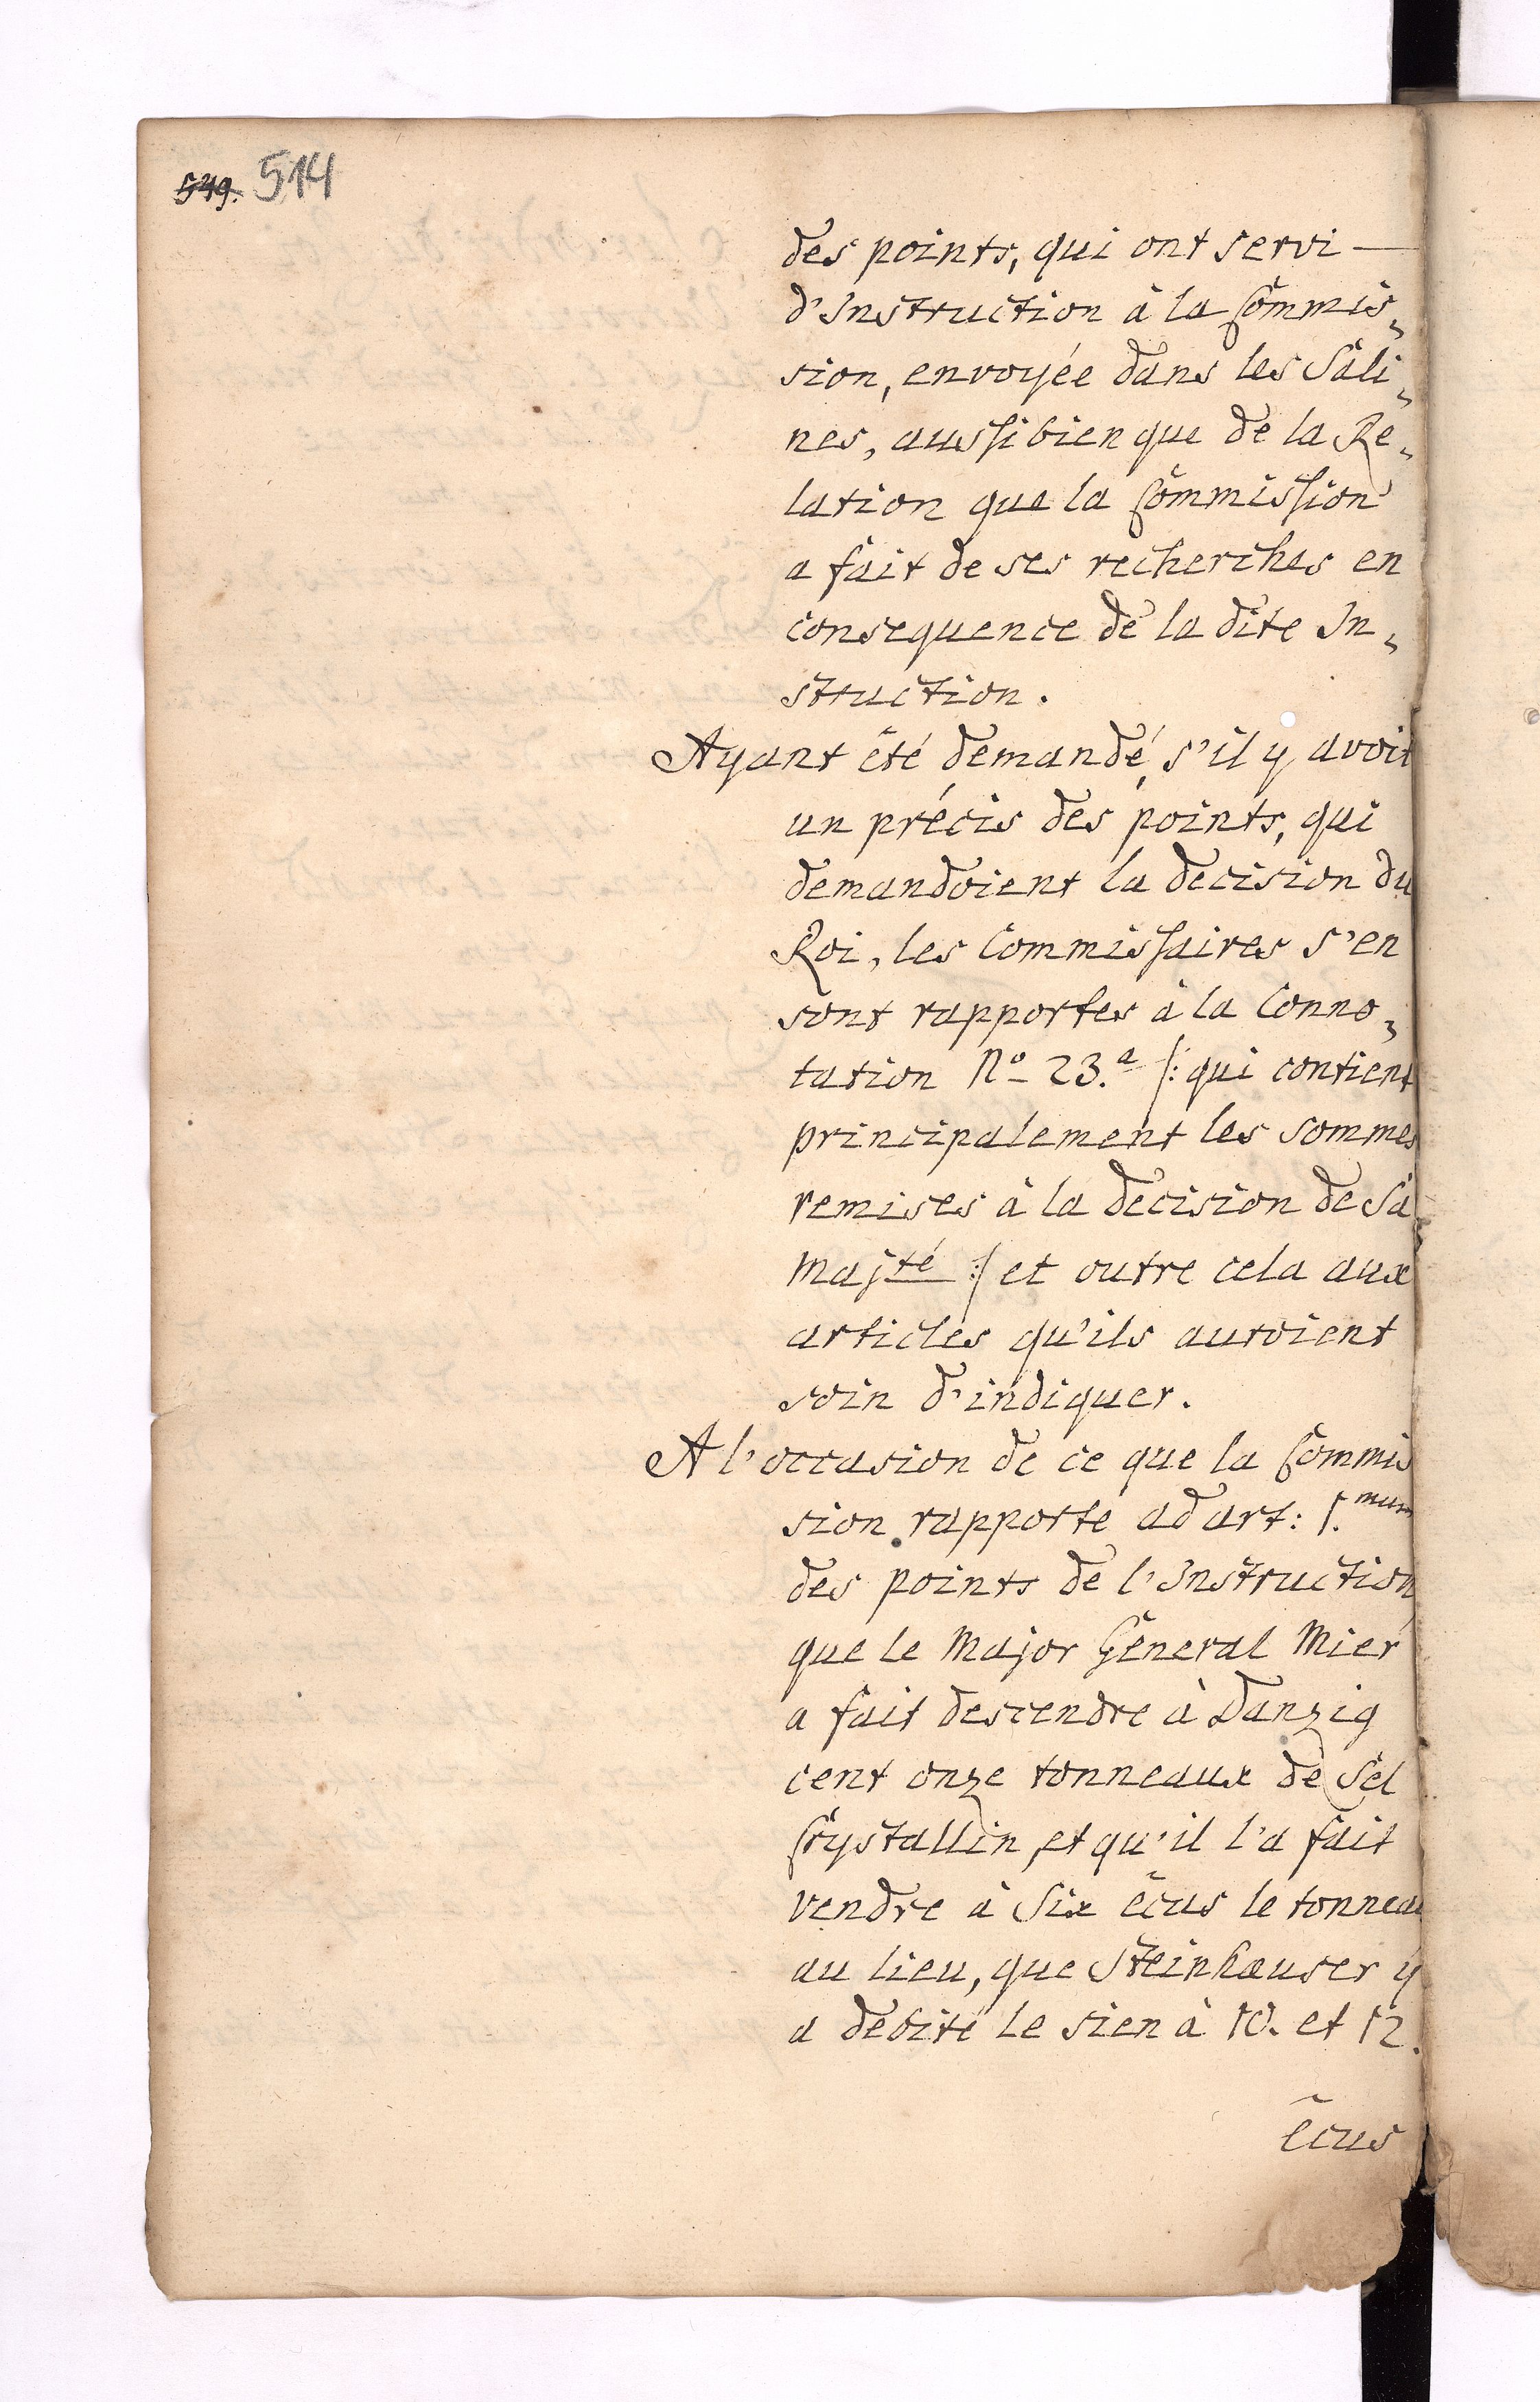 549. 514
des points, qui ont servi —
d'Instruction à la Commis„
sion, envoyée dans les Sali„
nes, aussi bien que de la Re„
lation que la Commission
a fait de ses recherches en
consequence de la dite In„
struction.
Ayant été demandé, s'il y avoit
un précis des points, qui
demandoient la decision du
Roi, les Commissaires s'en
sont rapportes à la Conno„
tation No 23.a /: qui contient
principalement les sommes
remises à la decision de Sa
Majté :/ et outre cela aux
articles qu'ils auroient
soin d'indiquer.
A l'occasion de ce que la Commis
sion rapporte ad art: 1.mum
des points de l'Instruction
que le Major Géneral Mier
a fait descendre à Danzig
cent onze tonneaux de Sel
Crystallin, et qu'il l'a fait
vendre à Six écus le tonneau
au lieu, que Steinhæuser y
a debité le sien à 10. et 12.
écus